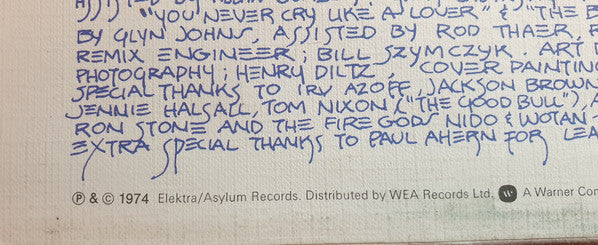 ASSISTED BY
"YOU NEVER CRY LIKE A LOVER" & "THE B
BY GLYN JOHNS, ASSISTED BY ROD THAER,
REMIX ENGINEER; BILL SZYMCZYK. ART
PHOTOGRAPHY; HENRY DILTZ, COVER PAINTIN
SPECIAL THANKS TO IRV AZOFF, JACKSON BROWN
JENNIE HALSALL, TOM NIXON ("THE GOOD BULL"), A
RON STONE AND THE FIRE GODS NIDO & WOTAN -
EXTRA SPECIAL THANKS TO PAUL AHERN FOR LEA
℗ & © 1974 Elektra/Asylum Records. Distributed by WEA Records Ltd. W A Warner Com